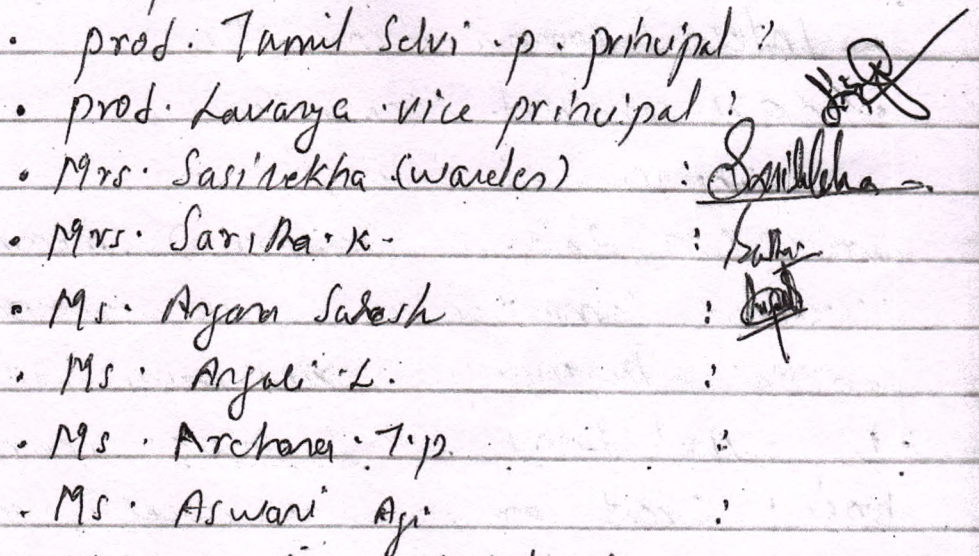 • prod. Tamil Selvi . p . principal :
• prod. Lavanya . vice principal :
• Mrs. Sasirekha (warden) : Sasirekha
• Mrs. Saritha . K . :
• Ms. Anjana Satheesh :
• Ms. Anjali . L . :
• Ms. Archana . T . p . :
• Ms. Aswani Aji :